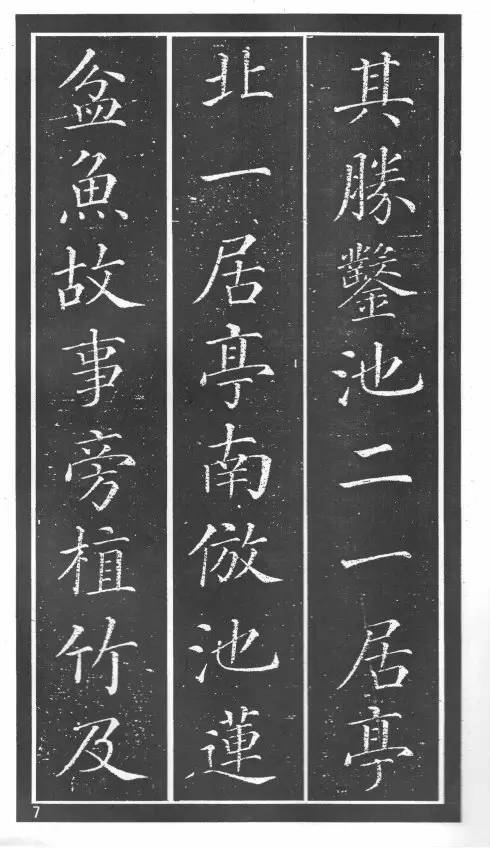 其勝鑿池二一居亭
北一居亭南倣池蓮
盆魚故事旁植竹及
7